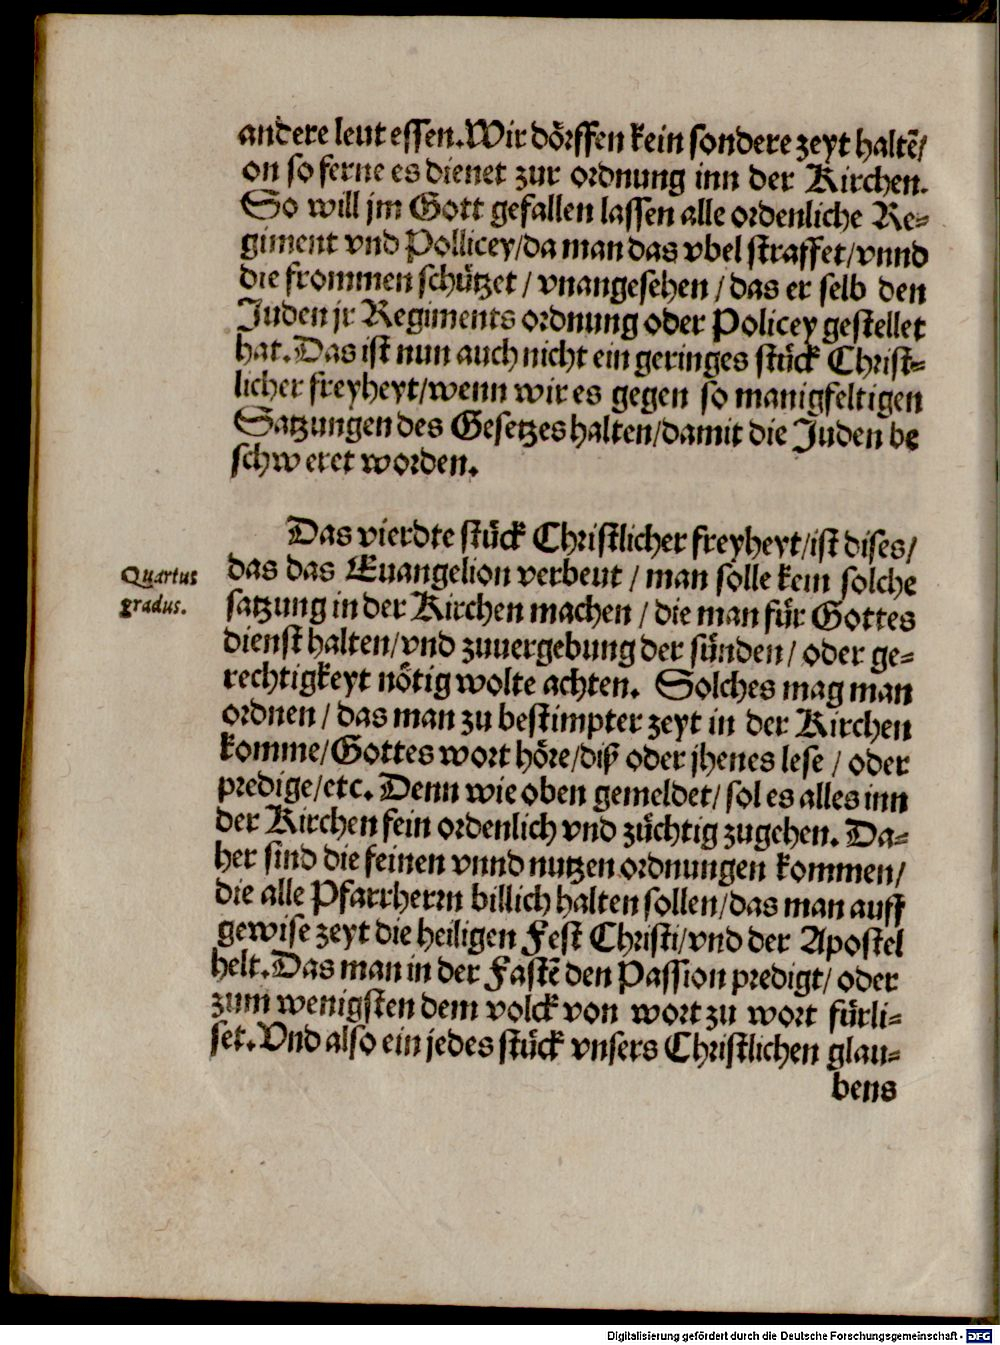 andere leut essen. Wir dörffen kein sondere zeyt haltē/
on so ferne es dienet zur ordnung inn der Kirchen.
So will jm Gott gefallen lassen alle ordenliche Re-
giment vnd Pollicey/da man das vbel straffet/vnnd
die frommen schützet / vnangesehen / das er selb den
Juden jr Regiments ordnung oder Policey gestellet
hat. Das ist nun auch nicht ein geringes stück Christ-
licher freyheyt/wenn wir es gegen so manigfeltigen
Satzungen des Gesetzes halten/damit die Juden be
schweret worden.
Das vierdte stück Christlicher freyheyt/ist dises/
Quartus
gradus.
das das Euangelion verbeut / man solle kein solche
satzung in der Kirchen machen / die man für Gottes
dienst halten/vnd zuuergebung der sünden / oder ge-
rechtigkeyt nötig wolte achten. Solches mag man
ordnen / das man zu bestimpter zeyt in der Kirchen
komme/Gottes wort höre/diß oder jhenes lese / oder
predige/etc. Denn wie oben gemeldet/ sol es alles inn
der Kirchen fein ordenlich vnd züchtig zugehen. Da-
her sind die feinen vnnd nutzen ordnungen kommen/
die alle Pfarrherrn billich halten sollen/das man auff
gewise zeyt die heiligen Fest Christi/vnd der Apostel
helt. Das man in der Fastē den Passion predigt/ oder
zum wenigsten dem volck von wort zu wort fürli-
set. Vnd also ein jedes stück vnsers Christlichen glau-
bens
Digitalisierung gefördert durch die Deutsche Forschungsgemeinschaft - DFG